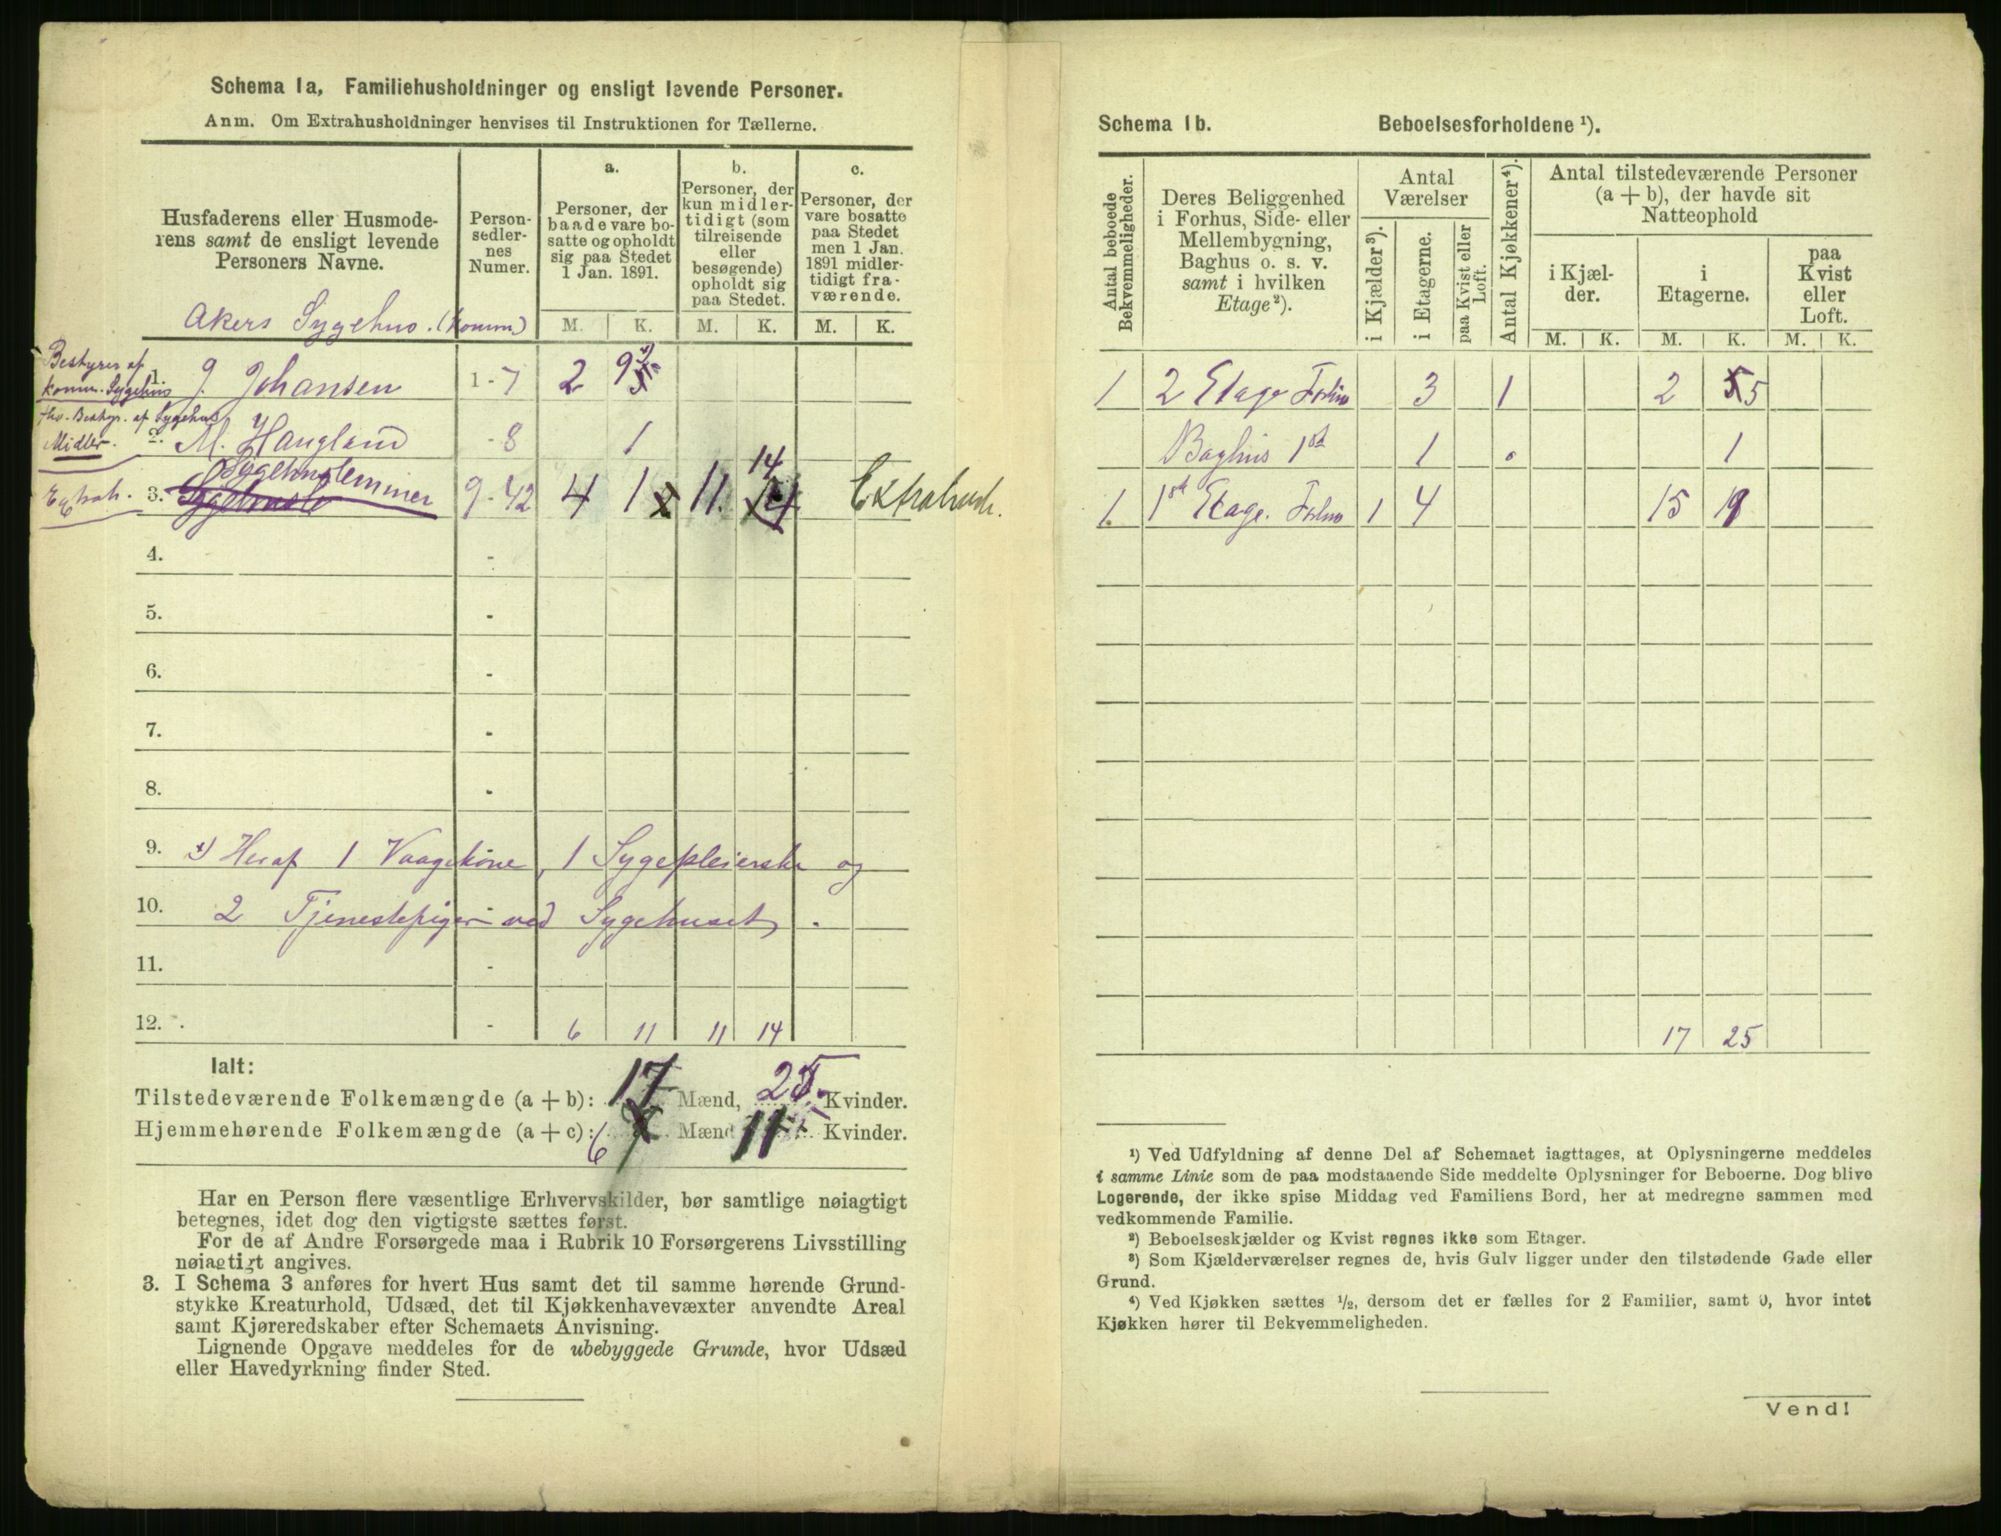 Schema 1a, Familiehusholdninger og ensligt levende Personer.
Anm. Om Extrahusholdninger henvises til Instruktionen for Tællerne.
Husfaderens eller Husmode-
rens samt de ensligt levende
Personers Navne.
Person-
sedler-
nes
Numer.
a.
Personer, der
baade vare bo-
satte og opholdt
sig paa Stedet
1 Jan. 1891.
b.
Personer, der
kun midler-
tidigt (som
tilreisende
eller
besøgende)
opholdt sig
paa Stedet.
c.
Personer, der
vare bosatte
paa Stedet
men 1 Jan.
1891 midler-
tidigt fra-
værende.
M. K. M. K. M. K.
Akers Sygehus. (Komm)
Bestyrer af
Komm. Sygehus
1. J. Johansen 1-7 2 9
Bestyr. af Sygehus
Midler.
2. M. Haugland -8 1
Sygehuslemmer
3. 9-42 4 1 11 14
4. -
5. -
6. -
7. -
8. -
9. x) Heraf 1 Vaagekone, 1 Sygepleierske og
10. 2 Tjenestepiger ved Sygehuset.
11. -
12. - 6 11 11 14
Ialt:
Tilstedeværende Folkemængde (a + b): 17 Mænd, 25 Kvinder.
Hjemmehørende Folkemængde (a + c): 6 Mænd 11 Kvinder.
Har en Person flere væsentlige Erhvervskilder, bør samtlige nøiagtigt
betegnes, idet dog den vigtigste sættes først.
For de af Andre Forsørgede maa i Rubrik 10 Forsørgerens Livsstilling
nøiagtigt angives.
3. I Schema 3 anføres for hvert Hus samt det til samme hørende Grund-
stykke Kreaturhold, Udsæd, det til Kjøkkenhavevæxter anvendte Areal
samt Kjøreredskaber efter Schemaets Anvisning.
Lignende Opgave meddeles for de ubebyggede Grunde, hvor Udsæd
eller Havedyrkning finder Sted.
Schema 1b. Beboelsesforholdene ¹).
Antal beboede
Bekvemmeligheder.
Deres Beliggenhed
i Forhus, Side- eller
Mellembygning,
Baghus o. s. v.
samt i hvilken
Etage²).
Antal
Værelser
i Kjælder³).
i Etagerne.
paa Kvist eller
Loft.
Antal Kjøkkener⁴).
Antal tilstedeværende Personer
(a + b), der havde sit
Natteophold
i Kjæl-
der.
i
Etagerne.
paa
Kvist
eller
Loft.
M. K. M. K. M. K.
1 2 Etage Forhus 3 1 2 5
Baghus 1st 1 0 1
1 1st Etage. Forhus 1 4 15 19
17 25
¹) Ved Udfyldning af denne Del af Schemaet iagttages, at Oplysningerne meddeles
i samme Linie som de paa modstaaende Side meddelte Oplysninger for Beboerne. Dog blive
Logerende, der ikke spise Middag ved Familiens Bord, her at medregne sammen med
vedkommende Familie.
²) Beboelseskjælder og Kvist regnes ikke som Etager.
³) Som Kjælderværelser regnes de, hvis Gulv ligger under den tilstødende Gade eller
Grund.
⁴) Ved Kjøkken sættes ½, dersom det er fælles for 2 Familier, samt 0, hvor intet
Kjøkken hører til Bekvemmeligheden.
Vend!